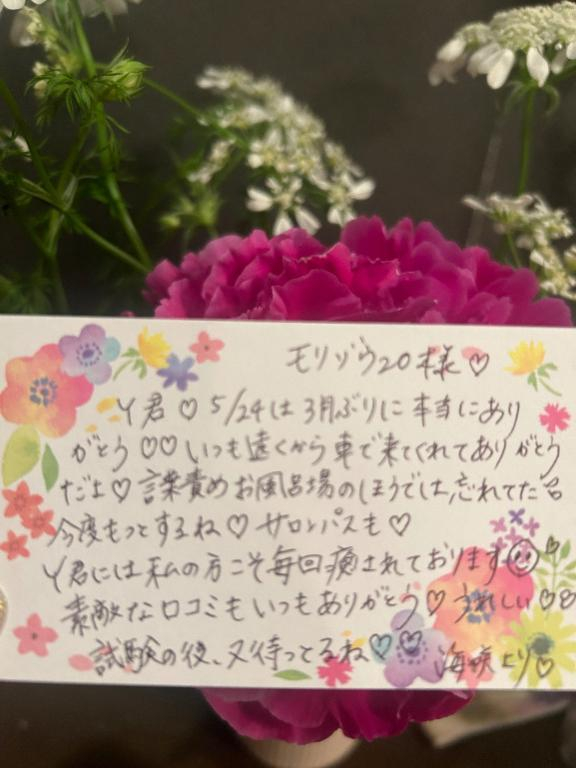 モリゾウ20様♡
Y君♡5/24は3月ぶりに本当にあり
がとう♡♡いつも遠くから車で来てくれてありがとう
だよ♡言葉責めお風呂場のほうでは忘れてた
今度もっとするね♡サロンパスも♡
Y君には私の方こそ毎回癒されております☺
素敵な口コミもいつもありがとう♡うれしい♡♡
試験の後、又待ってるね♡♡ 海咲より♡